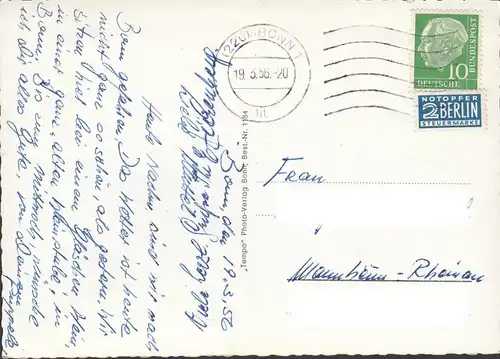 Bonn, den 19.3.56
Heute Nachm. sind wir nach
Bonn gefahren. Das Wetter ist heute
nicht ganz so schön, als gestern. Wir
sitzen hier bei einem Gläschen Wein,
in einer ganz alten Weinstube, in
Bonn. Bis zum Mittwoch, wünsche
ich Dir alles Gute,
"Tempo" Photo-Verlag Bonn, Best.-Nr. 1184
(22c) BONN 1
19.3.56.-20
bt
DEUTSCHE
BUNDESPOST
10
NOTOPFER
2 BERLIN
STEUERMARKE
Frau
Mannheim-Rheinau